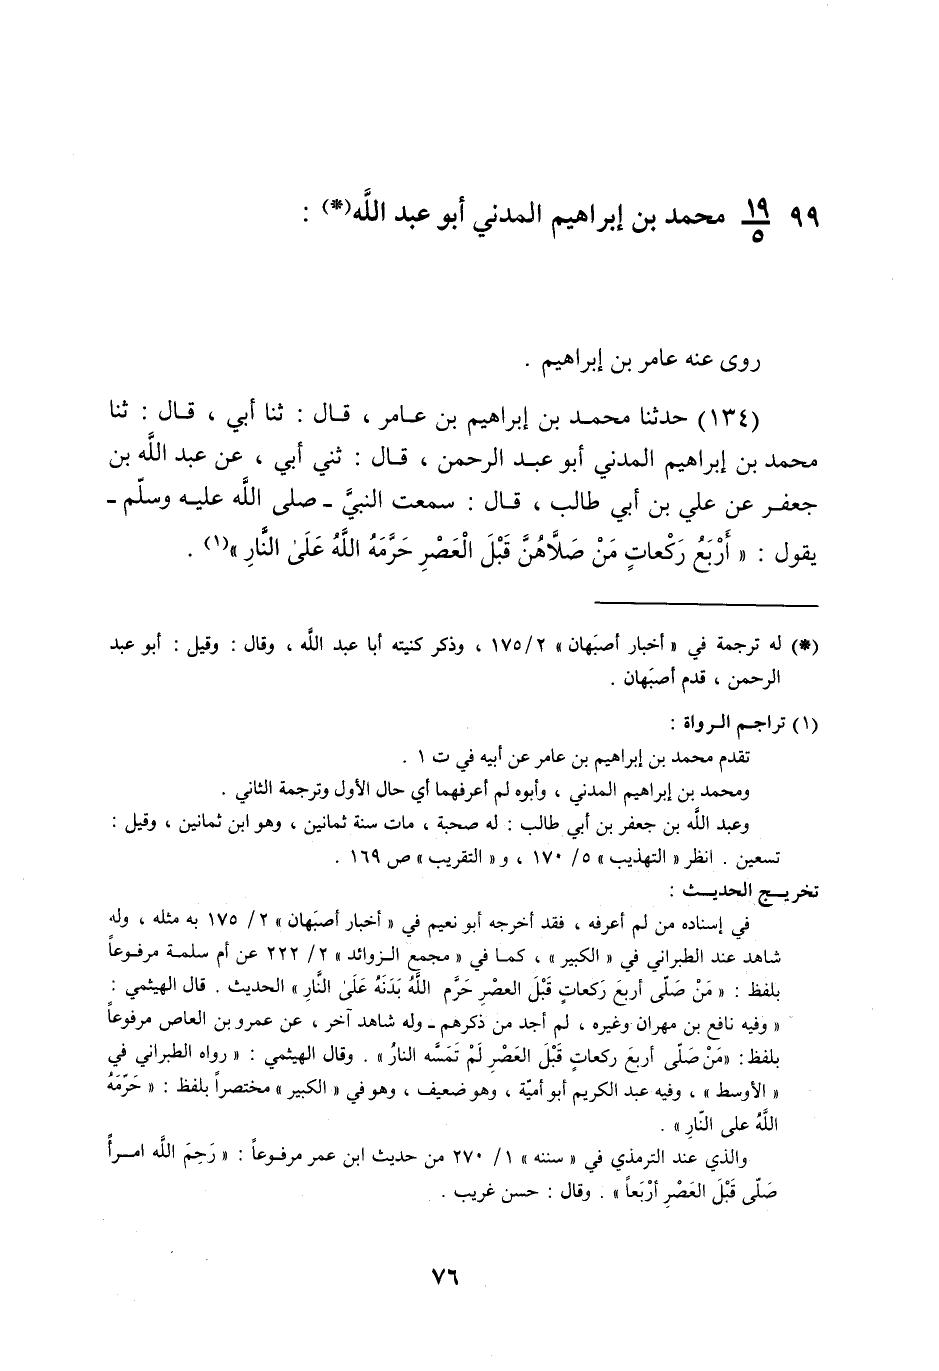 ٩٩ ١٩/٥ محمد بن إبراهيم المدني أبو عبد اللَّه(*) :
روى عنه عامر بن إبراهيم .
(١٣٤) حدثنا محمـد بن إبراهيم بن عـامر ، قـال : ثنا أبي ، قـال : ثنا
محمد بن إبراهيم المدني أبو عبـد الرحمن ، قـال : ثني أبي ، عن عبد اللَّه بن
جعفـر عن علي بن أبي طالب ، قـال : سمعت النبيَّ ـ صلى اللَّه عليـه وسلّم ـ
يقول : « أَرْبَعُ رَكْعاتٍ مَنْ صَلَّاهُنَّ قَبْلَ الْعَصْرِ حَرَّمَهُ اللَّهُ عَلَىٰ النَّارِ »(١) .
(*) له ترجمة في « أخبار أصبَهان » ١٧٥/٢ ، وذكر كنيته أبا عبد اللَّه ، وقال : وقيل : أبو عبد
الرحمن ، قدم أصبَهان .
(١) تراجـم الـرواة :
تقدم محمد بن إبراهيم بن عامر عن أبيه في ت ١ .
ومحمد بن إبراهيم المدني ، وأبوه لم أعرفهما أي حال الأول وترجمة الثاني .
وعبد اللَّه بن جعفر بن أبي طالب : له صحبة ، مات سنة ثمانين ، وهو ابن ثمانين ، وقيل :
تسعين . انظر « التهذيب » ٥/ ١٧٠ ، و « التقريب » ص ١٦٩ .
تخريـج الحديـث :
في إسناده من لم أعرفه ، فقد أخرجه أبو نعيم في « أخبار أصبَهان » ٢/ ١٧٥ به مثله ، وله
شاهد عند الطبراني في « الكبير » ، كمـا في « مجمع الـزوائد » ٢/ ٢٢٢ عن أم سلمـة مرفـوعاً
بلفظ : « مَنْ صَلّى أربعَ رَكعاتٍ قَبْلَ العصْرِ حَرَّم اللَّهُ بَدَنَهُ عَلَىٰ النَّارِ » الحديث . قال الهيثمي :
« وفيه نافع بن مهران وغيره ، لم أجد من ذكرهم ـ وله شاهد آخر ، عن عمرو بن العاص مرفوعاً
بلفظ : «مَنْ صَلّى أربعَ ركعاتٍ قَبْلَ العَصْرِ لَمْ تَمَسَّه النارُ » . وقال الهيثمي : « رواه الطبراني في
« الأوسط » ، وفيه عبد الكريم أبو أميّة ، وهو ضعيف ، وهو في « الكبير » مختصراً بلفظ : « حَرّمَهُ
اللَّهُ على النّارِ » .
والذي عند الترمذي في « سننه » ١/ ٢٧٠ من حديث ابن عمر مرفـوعاً : « رَحِمَ اللَّه امـرأً
صَلّى قَبْلَ العَصْرِ أرْبَعاً » . وقال : حسن غريب .
٧٦